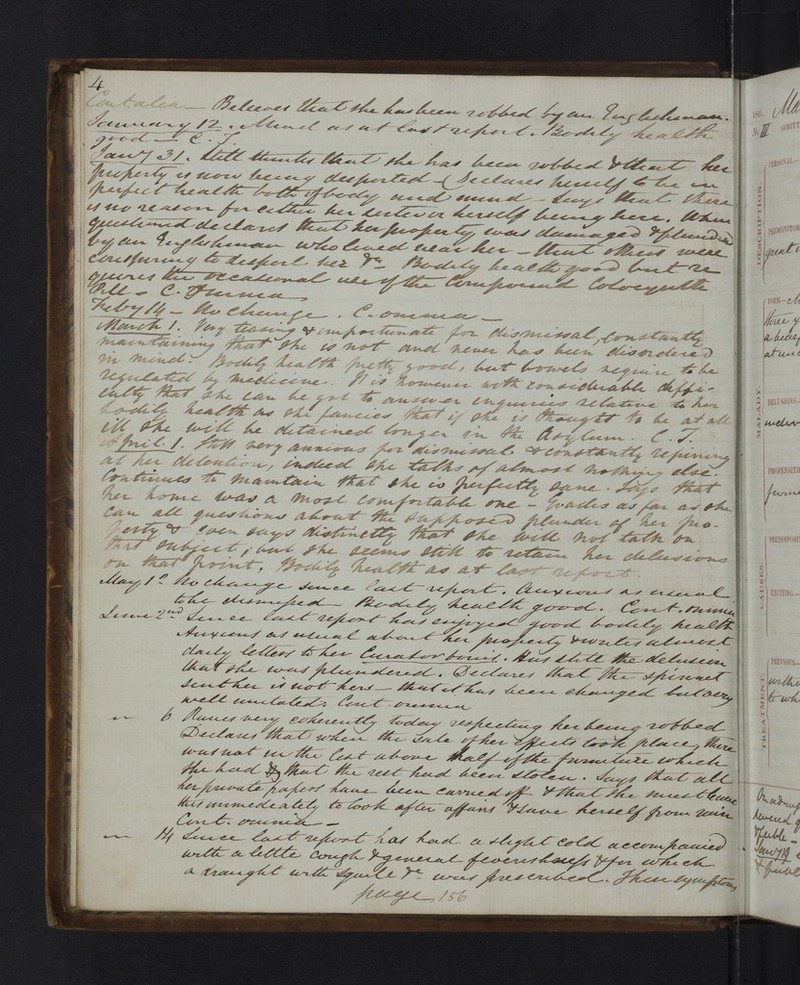 4
Cont. alia — Believes that she has been robbed by an Englishman.
January 12. Mind as at last report. Bodily health
good — C.
Jany 31. Still thinks that she has been robbed & that her
property is now being desported — Declares herself to be in
perfect health both of body and mind — Says that there
is no reason for either her sister or herself being here. When
questioned declares that her property was damaged & plundered
by an Englishman who lived near her — that others were
conspiring to desport her &c — Bodily health good but re
quires the occasional use of the Compound Colocynth
Pill — C. Omnia
Feby 14 — No change. C. omnia —
March 1. Very teasing & importunate for dismissal, constantly
maintaining that she is not and never has been disordered
in mind. Bodily health pretty good, but bowels require to be
regulated by medicine. It is however with considerable diffi-
culty that she can be got to answer enquiries relative to her
bodily health as she fancies that if she is thought to be at all
ill she will be detained longer in the Asylum. C.
April 1. Still very anxious for dismissal & constantly repining
at her detention, indeed she talks of almost nothing else.
Continues to maintain that she is perfectly sane. Says that
her home was a most comfortable one — Evades as far as she
can all questions about the supposed plunder of her pro-
perty & even says distinctly that she will not talk on
that subject; but she seems still to retain her delusions
on that point. Bodily health as at last report.
May 1st No change since last report. Anxious as usual
to be dismissed — Bodily health good. Cont. omnia
June 2nd Since last report has enjoyed good bodily health
Anxious as usual about her property & writes almost
daily letters to her Curator bonis. Has still the delusion
that she was plundered. Declares that the spinnet
sent her is not hers — that it has been changed but very
well imitated. Cont. omnia
" 6 Raves very coherently today respecting her being robbed
Declares that when the sale of her effects took place, there
was not in the list above half of the furniture which
she had & that the rest had been stolen. Says that all
her private papers have been carried off & that she must leave
this immediately to look after affairs & save herself from ruin
Cont. omnia —
" 14 Since last report has had a slight cold accompanied
with a little cough & general feverishness & for which
a draught with Squills &c was prescribed. These symptoms
page 156
184
Ma
No III
PERSONAL.—
DESCRIPTION.
PREMONITOR
great
FORM.—
three y
a belief
at un
MALADY.
DELUSIONS.—
PROPENSITI
PREDISPOSI
CAUSES.
EXCITING.—
PREVIOUS.—
within
to wh
TREATMENT.
On adm
feeble —
Jany 19